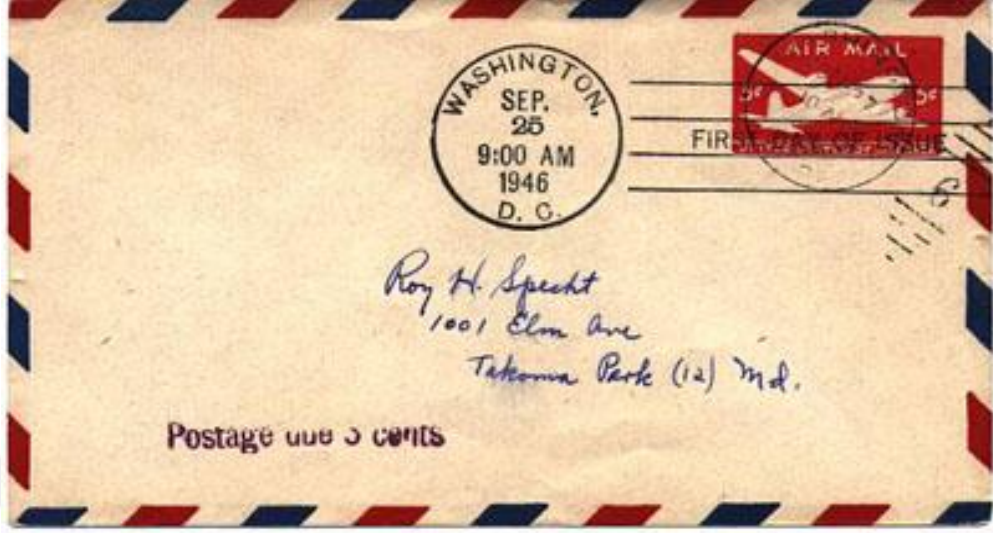 WASHINGTON,
SEP.
25
9:00 AM
1946
D. C.
AIR MAIL
5¢ 5¢
FIRST DAY OF ISSUE
Roy H. Specht
1001 Elm Ave
Takoma Park (12) Md.
Postage due 3 cents